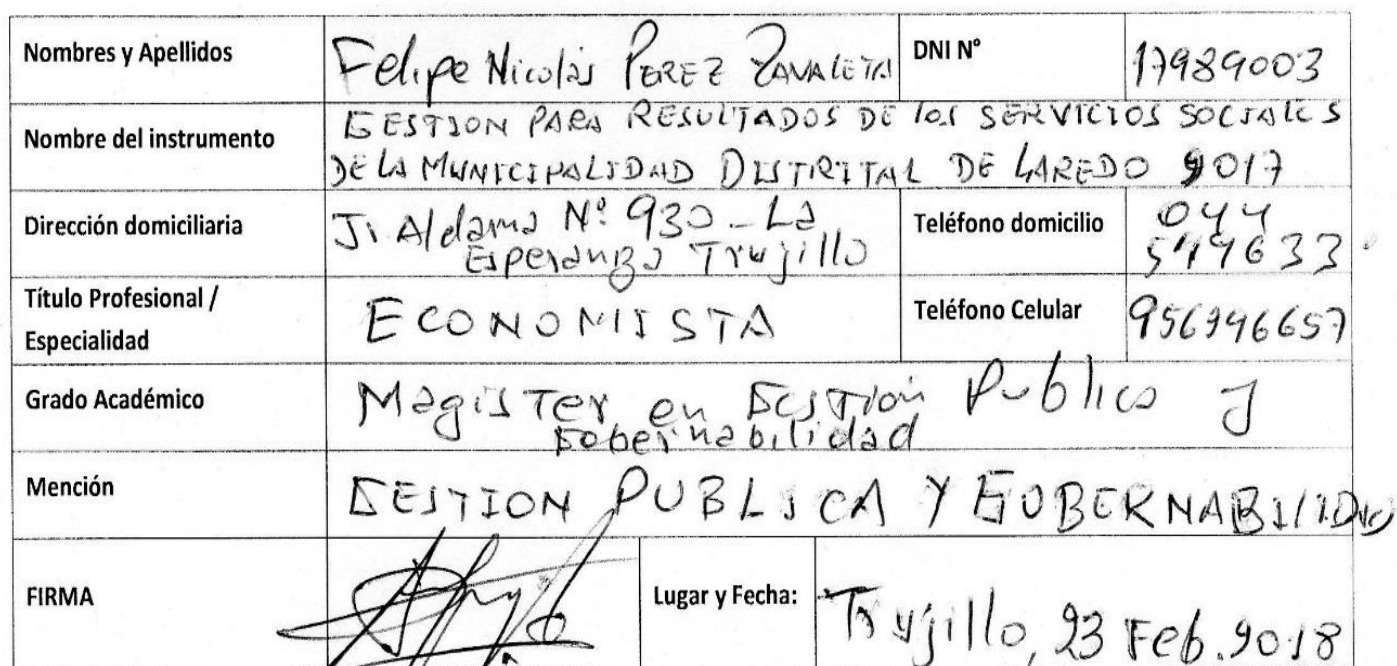 Nombres y Apellidos Felipe Nicolás PEREZ ZAVALETA DNI N° 17989003
Nombre del instrumento GESTION PARA RESULTADOS DE los SERVICIOS SOCIALES
DE LA MUNICIPALIDAD DISTRITAL DE LAREDO 2017
Dirección domiciliaria Jr Aldama N° 930 - La
Esperanza Trujillo
Teléfono domicilio 044
549633
Título Profesional /
Especialidad
ECONOMISTA
Teléfono Celular 956996657
Grado Académico Magister en Gestión Publica y
Gobernabilidad
Mención GESTION PUBLICA Y GOBERNABILIDAD
FIRMA Lugar y Fecha: Trujillo, 23 Feb. 2018